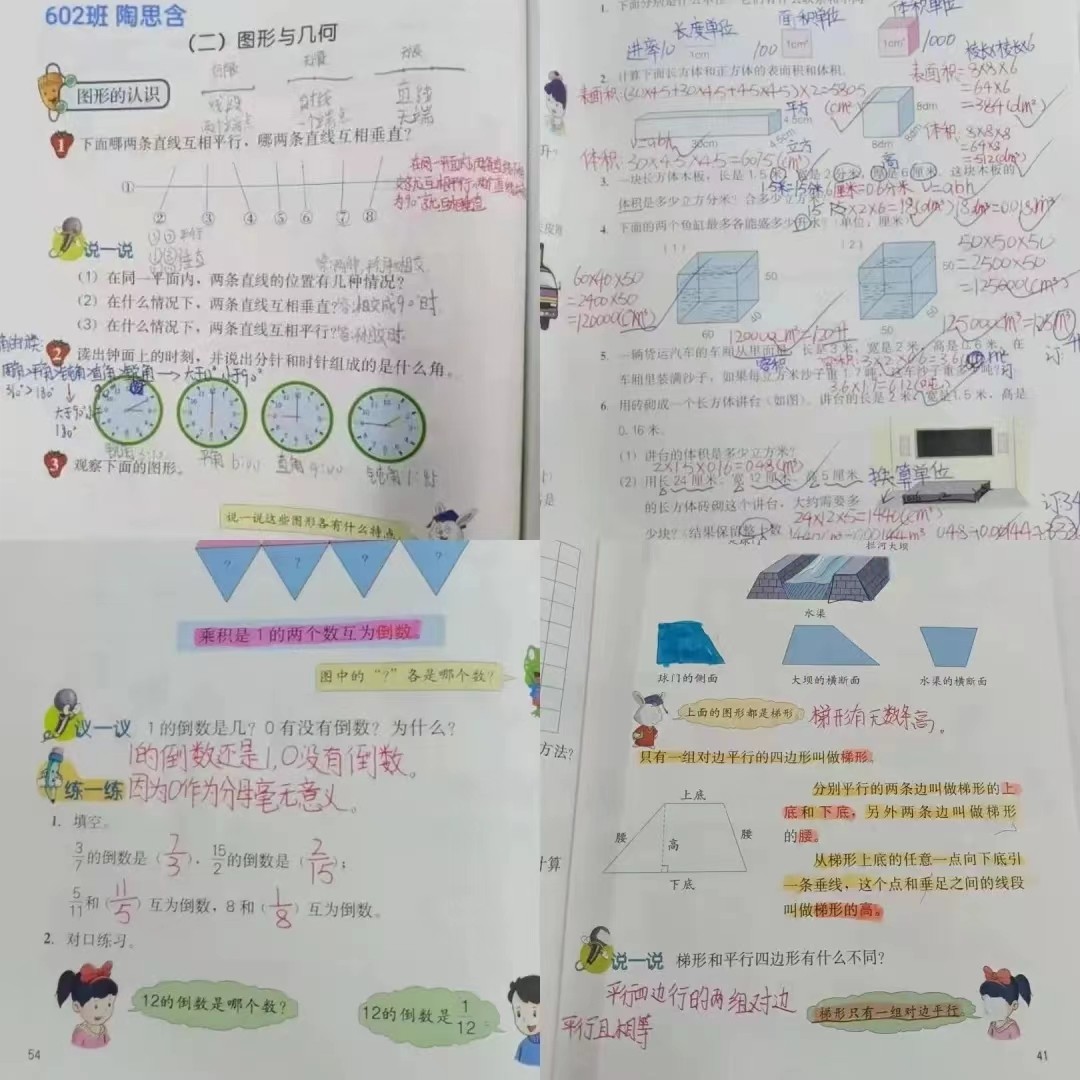 602班 陶思含
（二）图形与几何
图形的认识
线段
射线
直线
两个端点
一个端点
无端
1 下面哪两条直线互相平行，哪两条直线互相垂直？
①
② ③ ④ ⑤ ⑥ ⑦ ⑧
说一说
（1）在同一平面内，两条直线的位置有几种情况？
（2）在什么情况下，两条直线互相垂直？答：相交成90°时.
（3）在什么情况下，两条直线互相平行？
2 读出钟面上的时刻，并说出分针和时针组成的是什么角。
大于0° 小于90°
180°
平角 6:00
直角 9:00
钝角 1:45
3 观察下面的图形。
说一说这些图形各有什么特点
进率10
长度单位
1cm
100
面积单位
1cm²
体积单位
1cm³
1000
棱长×棱长×6
2. 计算下面长方体和正方体的表面积和体积。
表面积：(30×4.5+30×4.5+4.5×4.5)×2=580.5
平方 (cm²)
表面积=8×8×6
=64×6
=384(dm²)
4.5cm
30cm
4.5cm
8dm
8dm
V=abh
立方
体积：30×4.5×4.5=607.5(cm³)
体积：8×8×8
=64×8
=512(dm³)
高
3. 一块长方体木板，长是1.5米，宽是2分米，厚是6厘米。这块木板的
1.5米=15分米 6厘米=0.6分米 V=abh
体积是多少立方分米？合多少立方米？
4. 下面的两个鱼缸最多各能盛多少升水？（单位：厘米）
（1）
（2）
60×40×50
=2400×50
=120000(cm³)
50
40
60
120000cm³=120升
50×50×50
=2500×50
=125000(cm³)
50
50
50
125000cm³=125
5. 一辆货运汽车的车厢从里面量，长是3米，宽是2米，高是0.6米，在
容积：3×2×0.6=3.6
车厢里装满沙子，如果每立方米沙子重1.7吨，这车沙子重多少吨？
3.6×1.7=6.12(吨)
6. 用砖砌成一个长方体讲台（如图），讲台的长是2米，宽是1.5米，高是
0.16米。
（1）讲台的体积是多少立方米？
2×1.5×0.16=0.48(m³)
（2）用长24厘米、宽12厘米、高5厘米
换算单位
的长方体砖砌这个讲台，大约需要多
24×12×5=1440(cm³)
少块？（结果保留整十数
乘积是1的两个数互为倒数。
图中的“？”各是哪个数？
议一议 1的倒数是几？0有没有倒数？为什么？
1的倒数还是1,0没有倒数。
因为0作为分母毫无意义。
练一练
1. 填空。
3/7的倒数是（7/3），15/2的倒数是（2/15）；
5/11和（11/5）互为倒数，8和（1/8）互为倒数。
2. 对口练习。
12的倒数是哪个数？
12的倒数是1/12。
54
方法？
计算
拦河大坝
水渠
球门的侧面
大坝的横断面
水渠的横断面
上面的图形都是梯形
梯形有无数条高。
只有一组对边平行的四边形叫做梯形。
上底
腰
高
腰
下底
分别平行的两条边叫做梯形的上
底和下底，另外两条边叫做梯形
的腰。
从梯形上底的任意一点向下底引
一条垂线，这个点和垂足之间的线段
叫做梯形的高。
说一说 梯形和平行四边形有什么不同？
平行四边行的两组对边
平行且相等
梯形只有一组对边平行
41